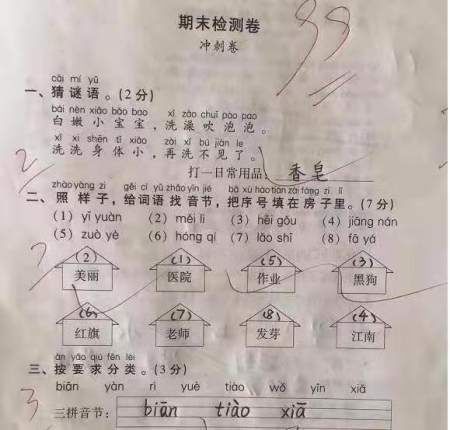 期末检测卷
99
冲刺卷
cāi mí yǔ
一、猜谜语。(2分)
bái nèn xiǎo bǎo bao xǐ zǎo chuī pào pao
白嫩小宝宝，洗澡吹泡泡。
xǐ xǐ shēn tǐ xiǎo zài xǐ bú jiàn le
洗洗身体小，再洗不见了。
2
打一日常用品 香皂
zhào yàng zi gěi cí yǔ zhǎo yīn jié bǎ xù hào tián zài fáng zi lǐ
二、照样子，给词语找音节，把序号填在房子里。(7分)
(1) yī yuàn (2) měi lì (3) hēi gǒu (4) jiāng nán
(5) zuò yè (6) hóng qí (7) lǎo shī (8) fā yá
7
(2) (1) (5) (3)
美丽 医院 作业 黑狗
(6) (7) (8) (4)
红旗 老师 发芽 江南
àn yāo qiú fēn lèi
三、按要求分类。(3分)
biān yàn rì yuè tiào wǒ yīn xiā
3
三拼音节： biān tiào xiā